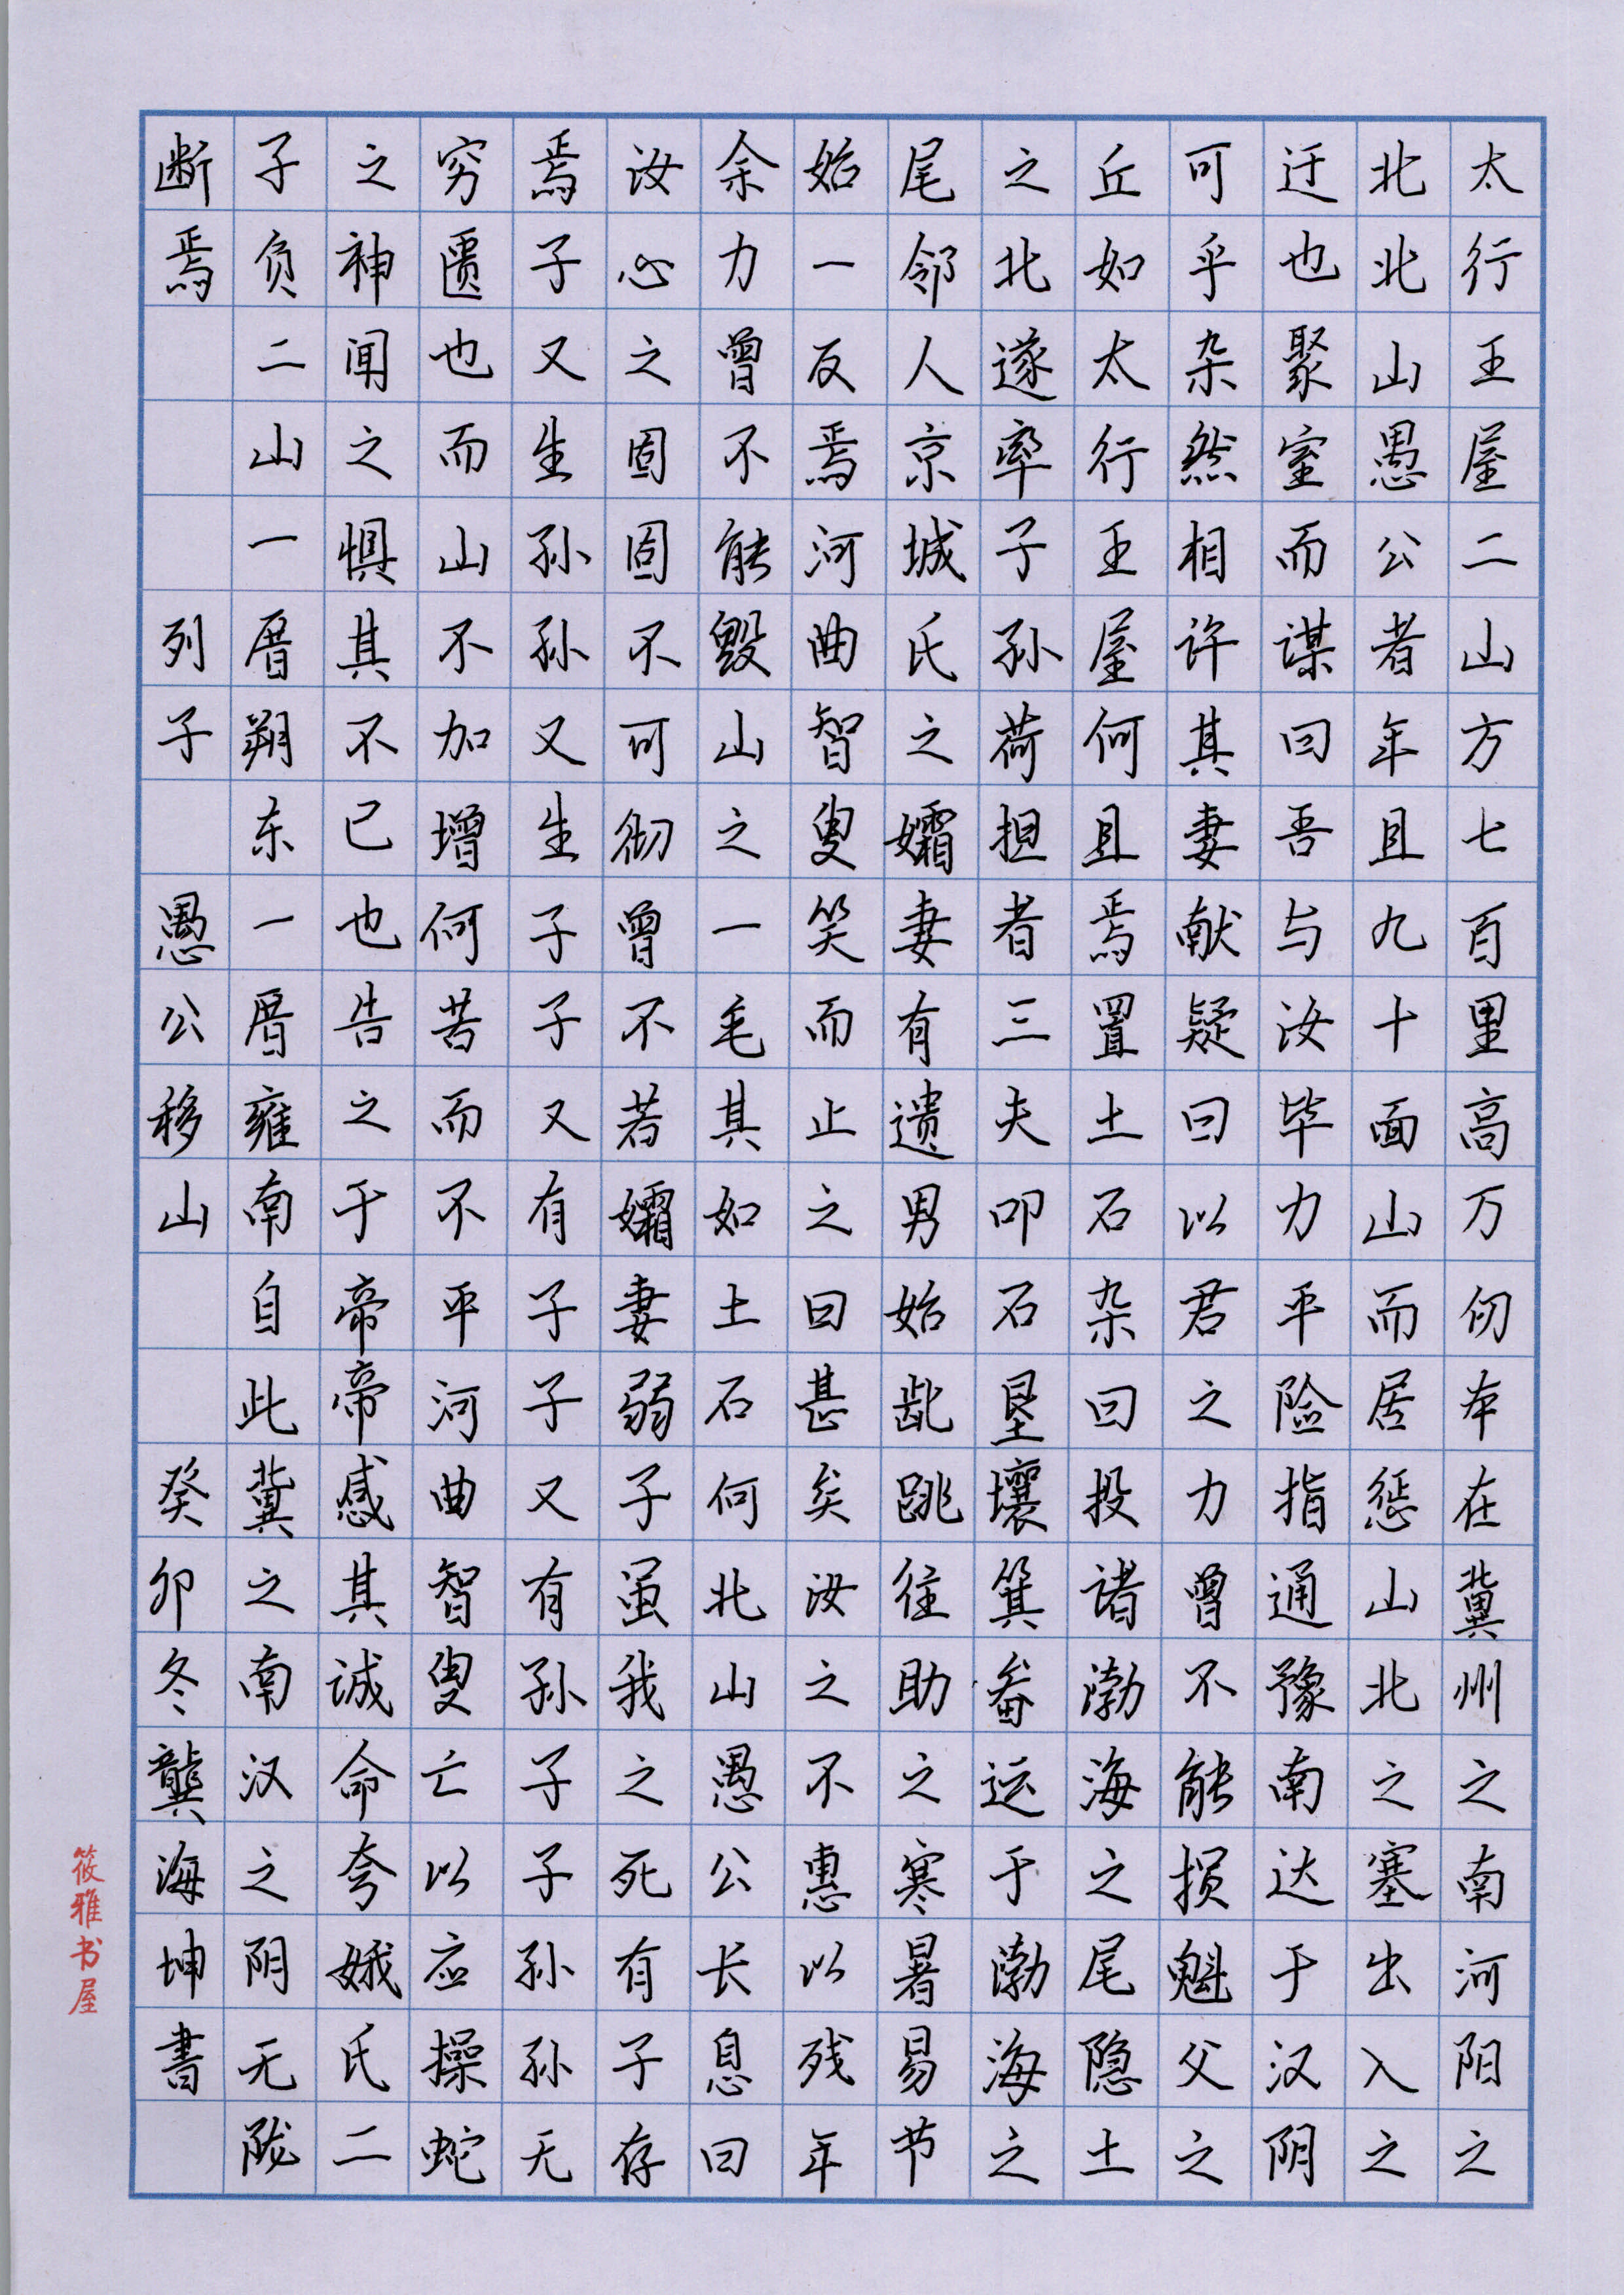 太行王屋二山方七百里高万仞本在冀州之南河阳之
北北山愚公者年且九十面山而居惩山北之塞出入之
迂也聚室而谋曰吾与汝毕力平险指通豫南达于汉阴
可乎杂然相许其妻献疑曰以君之力曾不能损魁父之
丘如太行王屋何且焉置土石杂曰投诸渤海之尾隐土
之北遂率子孙荷担者三夫叩石垦壤箕畚运于渤海之
尾邻人京城氏之孀妻有遗男始龀跳往助之寒暑易节
始一反焉河曲智叟笑而止之曰甚矣汝之不惠以残年
余力曾不能毁山之一毛其如土石何北山愚公长息曰
汝心之固固不可彻曾不若孀妻弱子虽我之死有子存
焉子又生孙孙又生子子又有子子又有孙子子孙孙无
穷匮也而山不加增何苦而不平河曲智叟亡以应操蛇
之神闻之惧其不已也告之于帝帝感其诚命夸娥氏二
子负二山一厝朔东一厝雍南自此冀之南汉之阴无陇
断焉 列子 愚公移山 癸卯冬龚海坤書
筱雅书屋